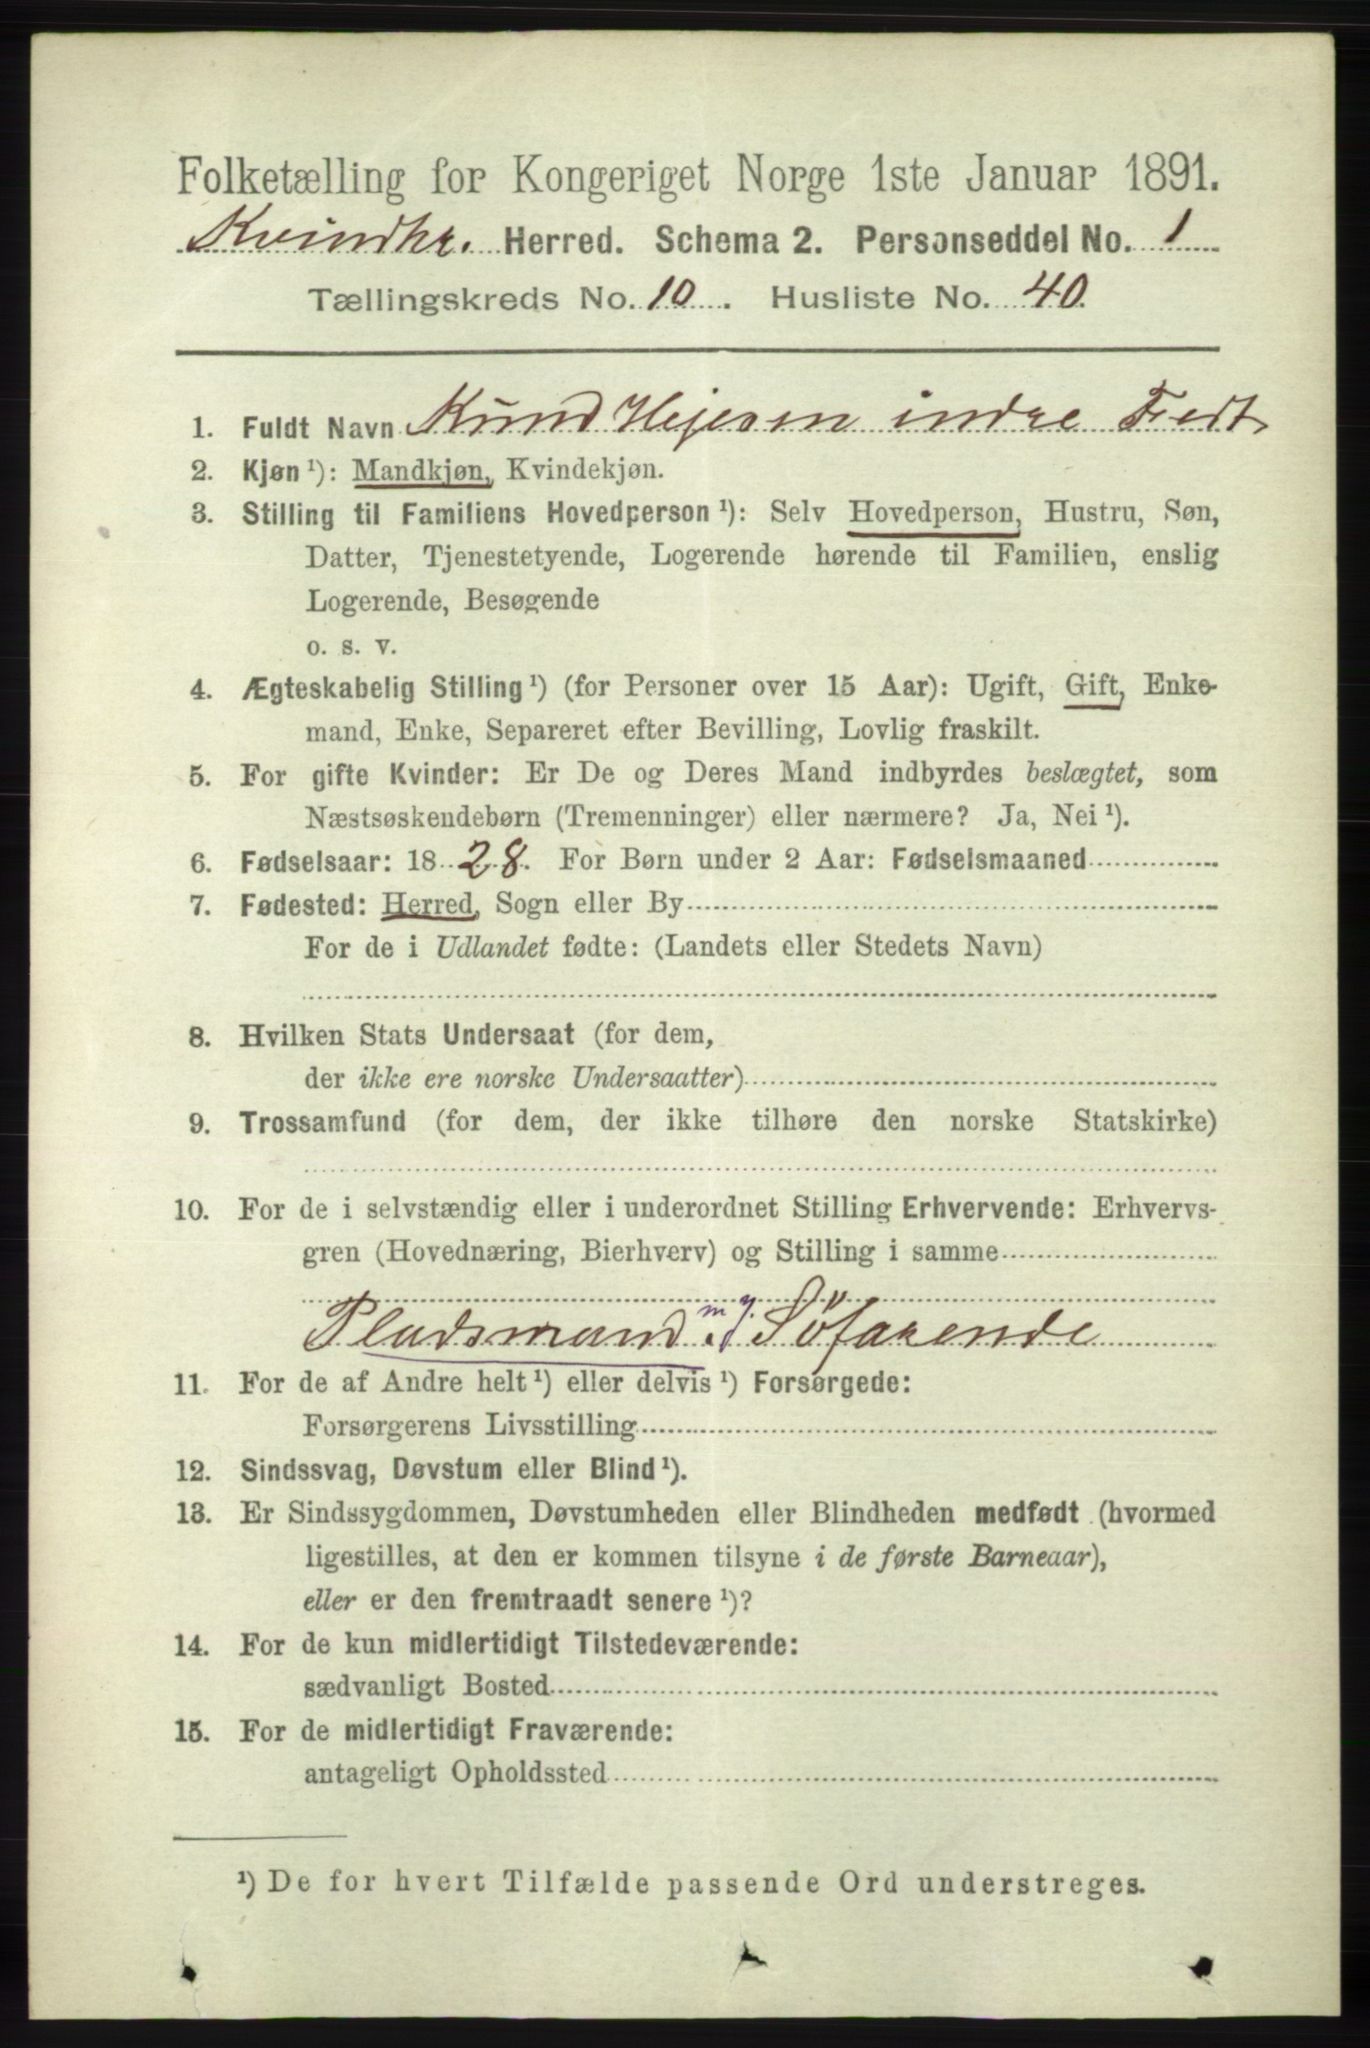 Folketælling for Kongeriget Norge 1ste Januar 1891.
Kvindhr. Herred. Schema 2. Personseddel No. 1
Tællingskreds No. 10. Husliste No. 40.
1. Fuldt Navn Knud Hejesen indre Fedt
2. Kjøn ¹): Mandkjøn, Kvindekjøn.
3. Stilling til Familiens Hovedperson ¹): Selv Hovedperson, Hustru, Søn,
Datter, Tjenestetyende, Logerende hørende til Familien, enslig
Logerende, Besøgende
o. s. v.
4. Ægteskabelig Stilling ¹) (for Personer over 15 Aar): Ugift, Gift, Enke-
mand, Enke, Separeret efter Bevilling, Lovlig fraskilt.
5. For gifte Kvinder: Er De og Deres Mand indbyrdes beslægtet, som
Næstsøskendebørn (Tremenninger) eller nærmere? Ja, Nei ¹).
6. Fødselsaar: 1828. For Børn under 2 Aar: Fødselsmaaned
7. Fødested: Herred, Sogn eller By
For de i Udlandet fødte: (Landets eller Stedets Navn)
8. Hvilken Stats Undersaat (for dem,
der ikke ere norske Undersaatter)
9. Trossamfund (for dem, der ikke tilhøre den norske Statskirke)
10. For de i selvstændig eller i underordnet Stilling Erhvervende: Erhvervs-
gren (Hovednæring, Bierhverv) og Stilling i samme
Pladsmand m. J. Söfarende
11. For de af Andre helt ¹) eller delvis ¹) Forsørgede:
Forsørgerens Livsstilling
12. Sindssvag, Døvstum eller Blind ¹).
13. Er Sindssygdommen, Døvstumheden eller Blindheden medfødt (hvormed
ligestilles, at den er kommen tilsyne i de første Barneaar),
eller er den fremtraadt senere ¹)?
14. For de kun midlertidigt Tilstedeværende:
sædvanligt Bosted
15. For de midlertidigt Fraværende:
antageligt Opholdssted
¹) De for hvert Tilfælde passende Ord understreges.